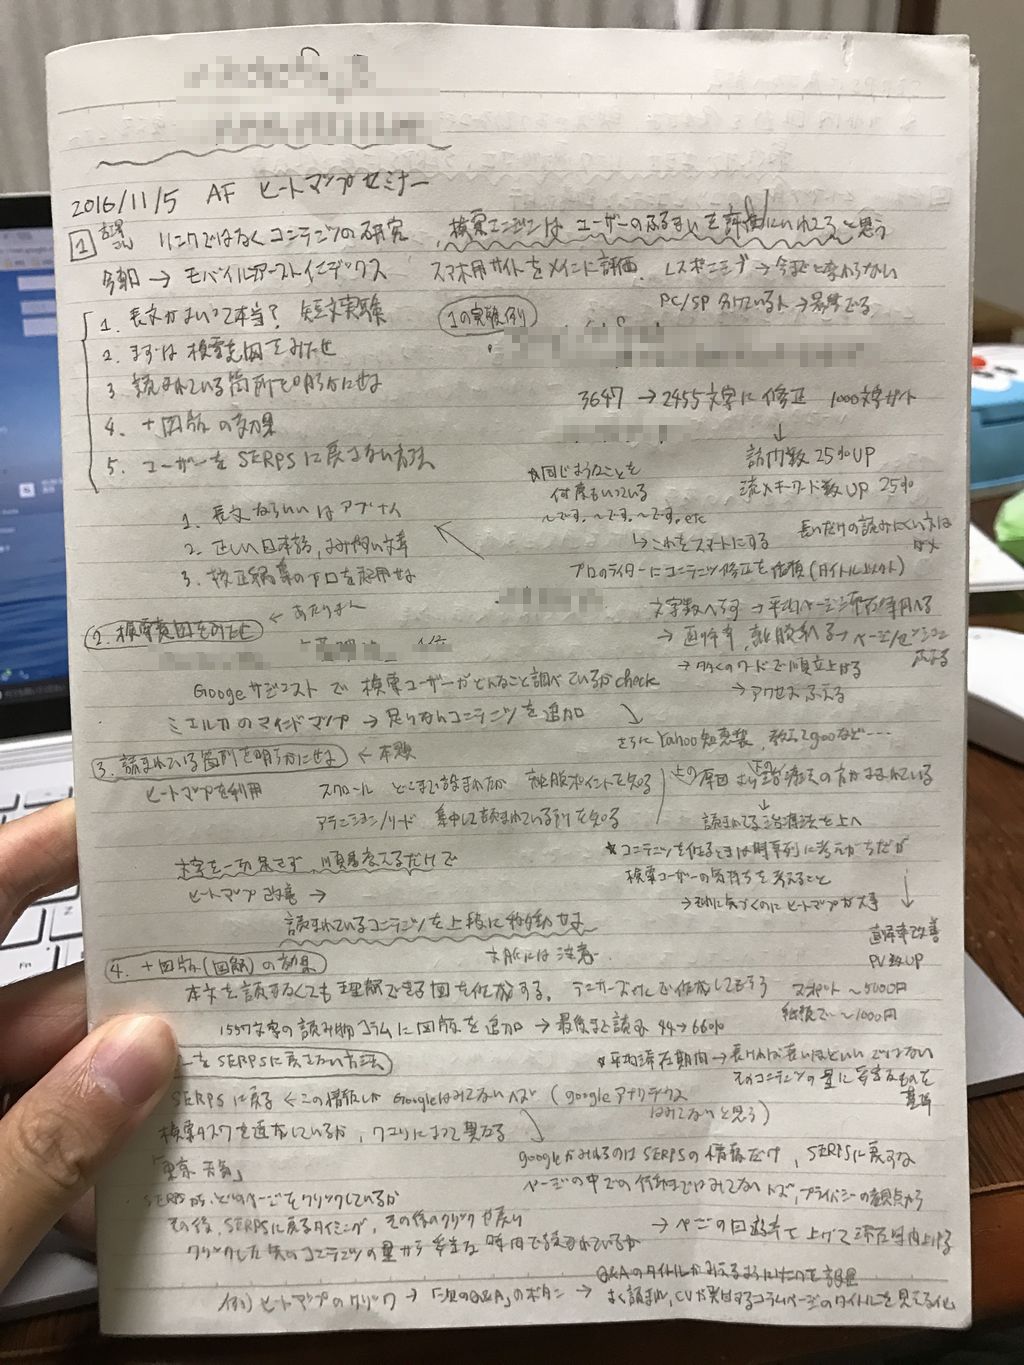 2016/11/5 AF ヒートマップセミナー
1 リンクではなくコンテンツの研究 検索エンジンはユーザーのふるまいを評価にいれてると思う
今朝 → モバイルファーストインデックス スマホ用サイトをメインに評価. レスポンシブ → 今までと変わらない
PC/SP 分けている人 →
1. 長文がよいって本当? 短文実験
1の実験例
2. まずは検索意図をみたせ
3. 読まれている箇所を明らかにせよ
3647 → 2455文字に修正 1000文字カット
4. +図版の効果
↓
訪問数25%UP
5. ユーザーをSERPSに戻さない方法
流入キーワード数UP 25%
※同じようなことを
何度もいっている
〜です。〜です。〜です。etc
↳ これをスマートにする
長いだけの読みにくい文はダメ
1. 長文ならいいはアブナイ
2. 正しい日本語, よみやすい文章
3. 校正編集のプロを起用せよ
プロのライターにコンテンツ修正を依頼(タイトル以外)
文字数へらす → 平均ページ滞在時間へる
2. 検索意図をみたせ ← あたりまえ
→ 直帰率, 離脱率へる → ページ/セッション ふえる
→ 多くのワードで順位上げる
→ アクセスふえる
Googeサジェストで検索ユーザーがどんなこと調べているかcheck
ミエルカのマインドマップ → 足りないコンテンツを追加
さらにYahoo知恵袋, 教えてgooなど---
3. 読まれている箇所を明らかにせよ ← 本題
ヒートマップを利用 スクロール どこまで読まれたか 離脱ポイントを知る
アテンション/リード 集中して読まれている所を知る
上の原因より治療法の方がよまれている
↓
読まれてる治療法を上へ
文字を一切足さず、順番変えるだけで
ヒートマップ改善 →
読まれているコンテンツを上段に移動せよ
★コンテンツを作るときは時系列に考えがちだが
検索ユーザーの気持ちを考えること
→ それに気づくのにヒートマップが大事
直帰率改善
PV数UP
4. +図版(図解)の効果
には注意.
本文を読まなくても理解できる図を作成する。 デザナーズなどで作成してもらう スポット〜5000円
〜1000円
1557文字の読み物コラムに図版を追加 → 最後まで読み 44→66%
ーをSERPSに戻さない方法
★平均滞在期間 → 長ければ長いほどいいではない
そのコンテンツの量に
SERPSに戻る ← この情報しかGoogleはみてないハズ (googleアナリティクスはみてないと思う)
検索タスクを達成しているか, クエリによって異なる
「東京 天気」
googleがみれるのはSERPSの情報だけ, SERPSに戻すな
ページの中での行動まではみてないハズ, プライバシーの観点から
SERPSから、どのページをクリックしているか
その後、SERPSに戻るタイミング, その後のクリックや戻り
クリックした先のコンテンツの量から妥当な時間で読まれているか
→ ページの回遊率 上げて滞在時間上げる
Q&Aのタイトルがみえるようにしたのを設置
例) ヒートマップのクリック → 「次のQ&A」のボタン → よく読まれ, CVが発生するコラムページのタイトルを見える化